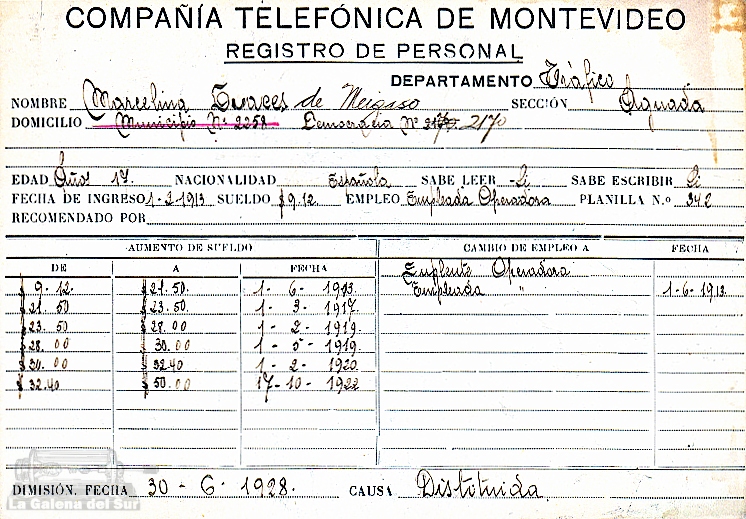 COMPAÑÍA TELEFÓNICA DE MONTEVIDEO
REGISTRO DE PERSONAL
DEPARTAMENTO Tráfico
NOMBRE Marcelina de SECCIÓN Aguada
DOMICILIO Municipio Nº 2258 Democracia Nº 2170
EDAD Años 17 NACIONALIDAD Española SABE LEER Si SABE ESCRIBIR Si
FECHA DE INGRESO 1-2-1913 SUELDO $ 9.12 EMPLEO Empleada Operadora PLANILLA N.º 342
RECOMENDADO POR
AUMENTO DE SUELDO CAMBIO DE EMPLEO A FECHA
DE A FECHA Suplente Operadora
$ 9.12. $ 21.50. 1-6-1913. Empleada " 1-6-1913.
$ 21.50 $ 23.50 1-3-1917.
$ 23.50 $ 28.00 1-2-1919.
$ 28.00 $ 30.00 1-5-1919.
$ 30.00 $ 32.40 1-2-1920.
$ 32.40 $ 50.00 17-10-1922
DIMISIÓN. FECHA 30-6-1928. CAUSA Distituida.
La Galena del Sur